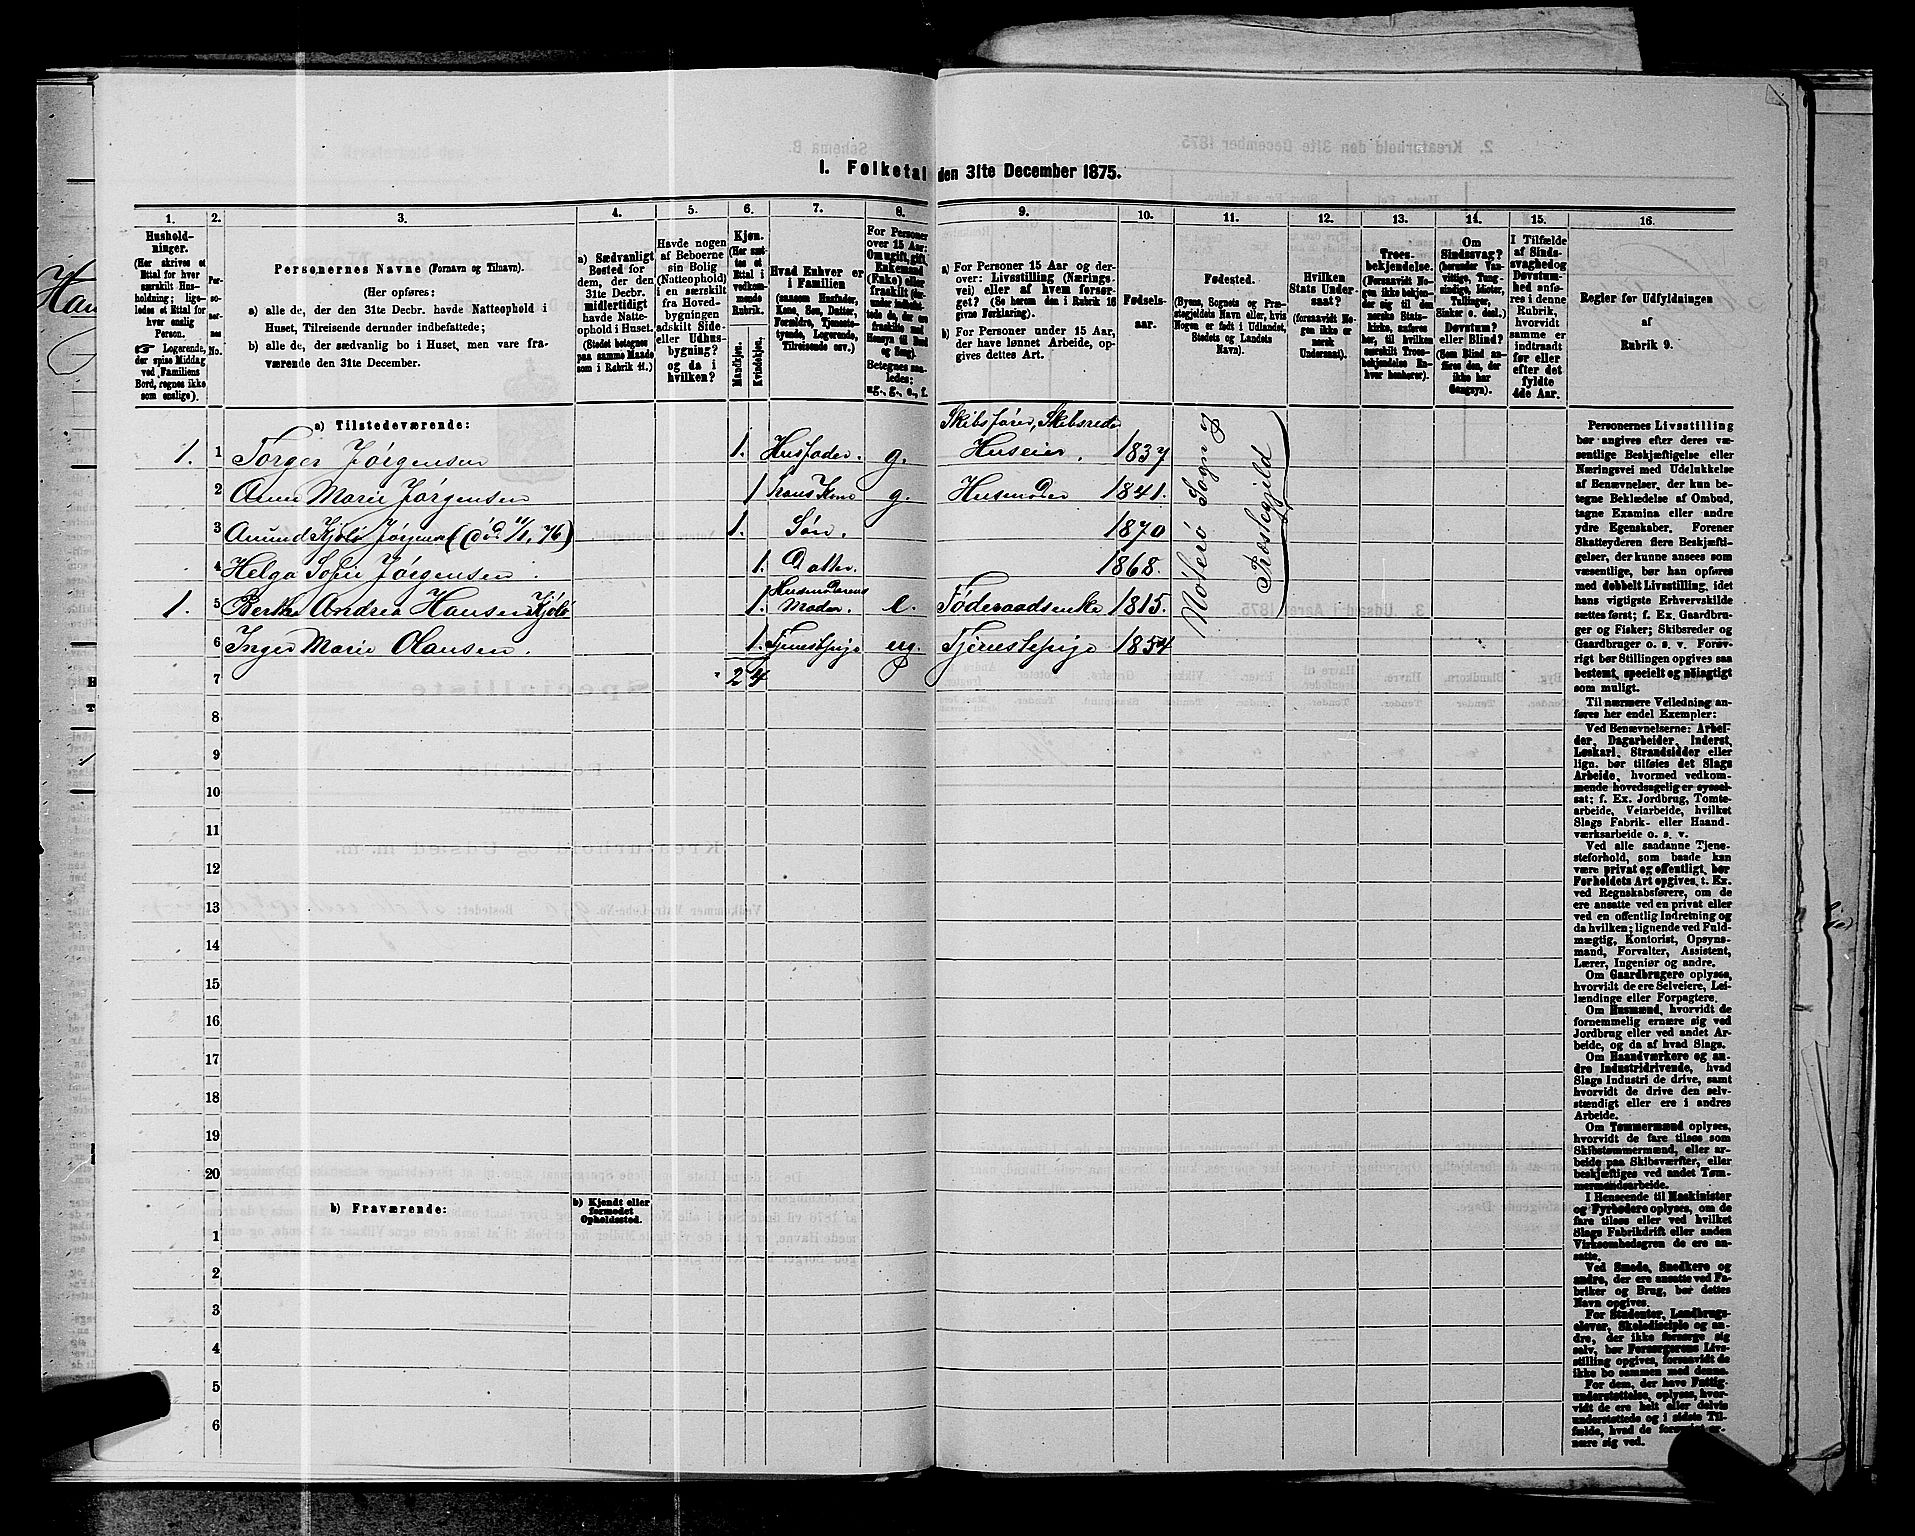 I. Folketal den 31te December 1875.
1. 2. 3. 4. 5. 6. 7. 8. 9. 10. 11. 12. 13. 14. 15. 16.
Hushold-
ninger.
(Her skrives et
Ettal for hver
særskilt Hus-
holdning; lige-
ledes et Ettal for
hver enslig
Person.
Logerende,
der spise Middag
ved Familiens
Bord, regnes ikke
som enslige).
Per-
so-
ner-
nes
No.
Personernes Navne (Fornavn og Tilnavn).
(Her opføres:
a) alle de, der den 31te Decbr. havde Natteophold i
Huset, Tilreisende derunder indbefattede;
b) alle de, der sædvanlig bo i Huset, men vare fra-
værende den 31te December.
a) Sædvanligt
Bosted for
dem, der den
31te Decbr.
midlertidigt
havde Natte-
ophold i Huset.
(Stedet betegnes
paa samme Maade
som i Rubrik 11.)
Havde nogen
af Beboerne
sin Bolig
(Natteophold)
i en særskilt
fra Hoved-
bygningen
adskilt Side-
eller Udhus-
bygning?
og da i
hvilken?
Kjøn.
(Her sæt-
tes et
Ettal i
vedkom-
mende
Rubrik.
Mandkjøn.
Kvindekjøn.
Hvad Enhver er
i Familien
(saasom Husfader,
Kone, Søn, Datter,
Forældre, Tjeneste-
tyende, Logerende,
Tilreisende osv.)
For Personer
over 15 Aar:
Om ugift, gift,
Enkemand
(Enke) eller
fraskilt
Betegnes saa-
ledes:
ug., g., e., f.
a) For Personer 15 Aar og der-
over: Livsstilling (Nærings-
vei) eller af hvem forsør-
get? (Se herom den i Rubrik 16
givne Forklaring).
b) For Personer under 15 Aar,
der have lønnet Arbeide, op-
gives dettes Art.
Fødsels-
aar.
Fødested.
(Byens, Sognets og Præ-
stegjeldets Navn eller, hvis
Nogen er født i Udlandet,
Stedets og Landets
Navn).
Hvilken
Stats Under-
saat?
(forsaavidt No-
gen ikke er
norsk
Undersaat).
Troes-
bekjendelse.
(Forsaavidt No-
gen ikke bekjen-
der sig til den
norske Stats-
kirke, anføres
her, til hvilken
særskilt Troes-
bekjendelse En-
hver henhører).
Om
Sindssvag?
(herunder Van-
vittige, Tung-
sindige, Idioter,
Tullinger,
Sinker o. desl.)
Døvstum?
eller Blind?
(Som Blind an-
føres den, der
ikke har
Gangsyn).
I Tilfælde
af Sinds-
svaghed og
Døvstum-
hed anfø-
res i denne
Rubrik,
hvorvidt
samme er
indtraadt
før eller
efter det
fyldte
4de Aar.
Regler for Udfyldningen
af
Rubrik 9.
a) Tilstedeværende:
Skibsfører, Skibsreder
1. 1 Torger Jørgensen 1. Husfader. g. Huseier. 1837
2 Anne Marie Jørgensen 1 Hans Kone g. Husmoder 1841.
3 Amund Kjølø Jørgensen (død 11/1, 76) 1. Søn. 1870
4 Helga Sofie Jørgensen. 1. Datter. 1868.
Husmoderens
1. 5 Berthe Andrea Hansen Kjølø 1. Moder. e. Føderaadsenke 1815.
6 Inger Marie Olausen. 1. Tjenestepige ug. Tjenestepige 1854
7 2 4
Sogn og
Præstegjeld
8
9
10
11
12
13
14
15
16
17
18
19
20
b) Fraværende:
b) Kjendt eller
formodet
Opholdssted.
1
2
3
4
5
6
Personernes Livsstilling
bør angives efter deres væ-
sentlige Beskjæftigelse eller
Næringsvei med Udelukkelse
af Benævnelser, der kun be-
tegne Beklædelse af Ombud,
tagne Examina eller andre
ydre Egenskaber. Forener
Skatteyderen flere Beskjæfti-
gelser, der kunne ansees som
væsentlige, bør han opføres
med dobbelt Livsstilling, idet
hans vigtigste Erhvervskilde
sættes først; f. Ex. Gaardbru-
ger og Fisker; Skibsreder og
Gaardbruger o. s. v. Forøv-
rigt bør Stillingen opgives saa
bestemt, specielt og nøiagtigt
som muligt.
Til nærmere Veiledning an-
føres her endel Exempler:
Ved Benævnelserne: Arbei-
der, Dagarbeider, Inderst,
Løskarl, Strandsidder eller
lign. bør tilføies det Slags
Arbeide, hvormed vedkom-
mende hovedsagelig er syssel-
sat; f. Ex. Jordbrug, Tomte-
arbeide, Veiarbeide, hvilket
Slags Fabrik- eller Haand-
værksarbeide o. s. v.
Ved alle saadanne Tjene-
steforhold, som baade kan
være privat og offentligt, bør
Forholdets Art opgives, t. Ex.
ved Regnskabsførere, om de
ere ansatte ved en privat eller
ved en offentlig Indretning og
da hvilken; lignende ved Fuld-
mægtig, Kontorist, Opsyns-
mand, Forvalter, Assistent,
Lærer, Ingeniør og andre.
Om Gaardbrugere oplyses,
hvorvidt de ere Selveiere, Lei-
lændinge eller Forpagtere.
Om Husmænd, hvorvidt de
fornemmelig ernære sig ved
Jordbrug eller ved andet Ar-
beide, og da af hvad Slags.
Om Haandværkere og an-
dre Industridrivende, hvad
Slags Industri de drive, samt
hvorvidt de drive den selv-
stændigt eller ere i andres
Arbeide.
Om Tømmermænd oplyses,
hvorvidt de fare tilsøs som
Skibstømmermænd, eller ar-
beide paa Skibsværfter, eller
beskjæftiges ved andet Tøm-
mermandsarbeide.
I Henseende til Maskinister
og Fyrbødere oplyses, om de
fare tilsøs eller ved hvilket
Slags Fabrikdrift eller anden
Virksomhedsgren de ere an-
satte.
Ved Smede, Snedkere og
andre, der ere ansatte ved Fa-
briker og Brug, bør dettes
Navn opgives.
For Studenter, Landbrugs-
elever, Skoledisciple og an-
dre, der ikke forsørge sig
selv, bør Forsørgerens Livs-
stilling opgives, forsaavidt de
ikke bo sammen med denne.
For dem, der have Fattig-
understøttelse, oplyses, hvor-
vidt de ere helt eller delvis
understøttede og i sidste Til-
fælde, hvad de forøvrigt er-
nære sig ved.